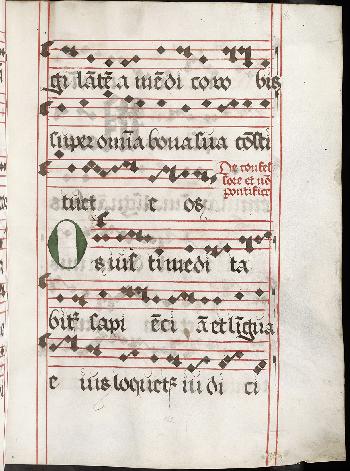 gi lāt; a mēdi coro bis
super omīa bona sua cōsti
tuet e os
De confes
sore et nō
pontifice
Os iusti medi ta
bit' sapi ēci ā et līgua
e ius loquet' iu di ci